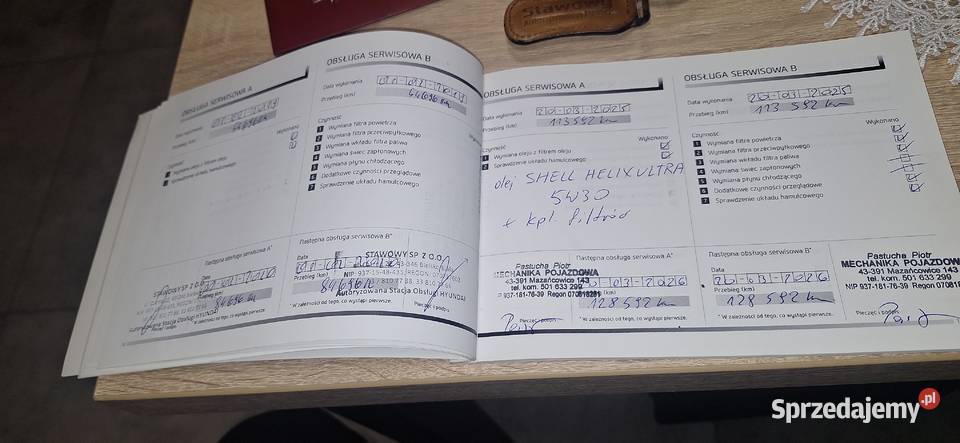 Stawowy
OBSŁUGA SERWISOWA A
Data wykonania
Przebieg (km)
64696 km
Czynność
Wykonano
1 Wymiana oleju z filtrem oleju
2 Sprawdzenie układu hamulcowego
Następna obsługa serwisowa A*
Data
Przebieg (km)
84696 km
* W zależności od tego, co wystąpi pierwsze.
Pieczęć i podpis
OBSŁUGA SERWISOWA B
Data wykonania
Przebieg (km)
64696 km
Czynność
1 Wymiana filtra powietrza
2 Wymiana filtra przeciwpyłkowego
3 Wymiana wkładu filtra paliwa
4 Wymiana świec zapłonowych
5 Wymiana płynu chłodzącego
6 Dodatkowe czynności przeglądowe
7 Sprawdzenie układu hamulcowego
Następna obsługa serwisowa B*
Data
STAWOWY SP. Z O.O.
Przebieg (km)
84696 km
Autoryzowana Stacja Obsługi HYUNDAI
* W zależności od tego, co wystąpi pierwsze.
Pieczęć i podpis
OBSŁUGA SERWISOWA A
Data wykonania
26-03-2025
Przebieg (km)
113 592 km
Czynność
Wykonano
1 Wymiana oleju z filtrem oleju
2 Sprawdzenie układu hamulcowego
olej SHELL HELIX ULTRA
5W30
+ kpl. filtrów
Następna obsługa serwisowa A*
Pastucha Piotr
MECHANIKA POJAZDOWA
43-391 Mazańcowice 143
tel. kom. 501 633 299
P 937-181-76-39 Regon 070818281
26-03-2026
128 592 km
* W zależności od tego, co wystąpi pierwsze.
Pieczęć i podpis
OBSŁUGA SERWISOWA B
Data wykonania
26-03-2025
Przebieg (km)
113 592 km
Czynność
Wykonano
1 Wymiana filtra powietrza
2 Wymiana filtra przeciwpyłkowego
3 Wymiana wkładu filtra paliwa
4 Wymiana świec zapłonowych
5 Wymiana płynu chłodzącego
6 Dodatkowe czynności przeglądowe
7 Sprawdzenie układu hamulcowego
Następna obsługa serwisowa B*
Data
26-03-2026
Przebieg (km)
128 592 km
* W zależności od tego, co wystąpi pierwsze.
Pastucha Piotr
MECHANIKA POJAZDOW
43-391 Mazańcowice 143
tel. kom. 501 633 299
NIP 937-181-76-39 Regon 070818
Pieczęć i podpis
Sprzedajemy.pl